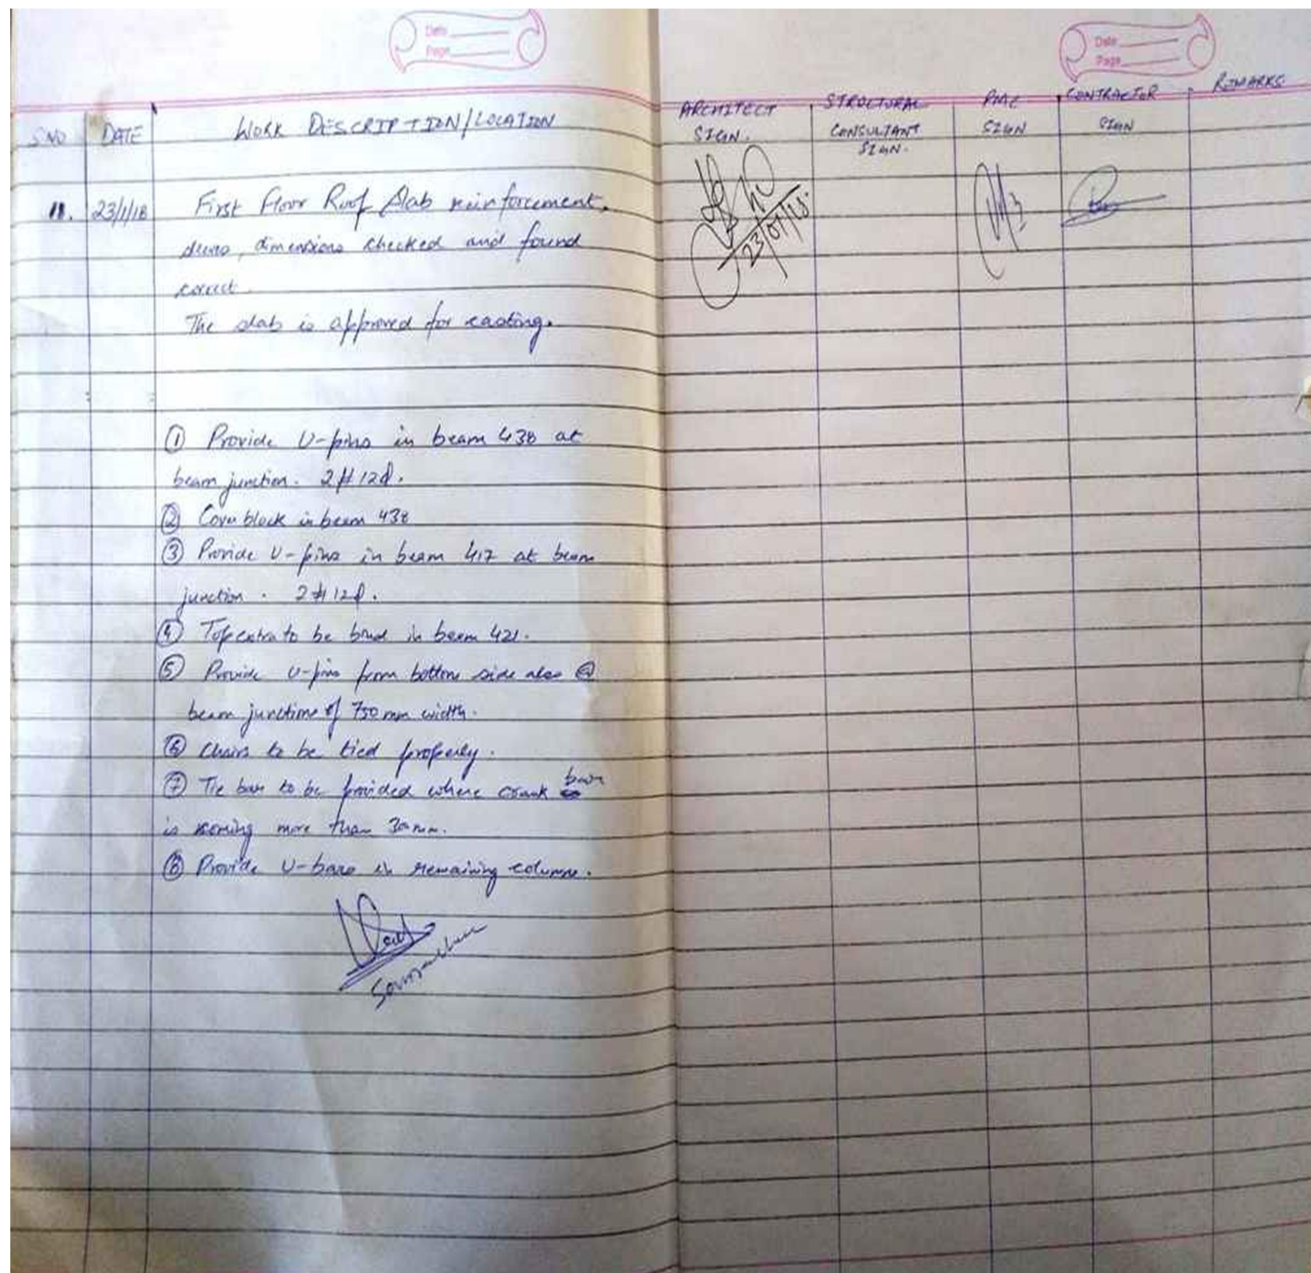 Date
Page
Date
Page
S.NO DATE WORK DESCRIPTION/LOCATION
ARCHITECT SIGN.
STRUCTURAL CONSULTANT SIGN.
PMC SIGN
CONTRACTOR SIGN
REMARKS
11. 23/1/18 First floor Roof Slab reinforcement,
dimensions checked and found
correct.
The slab is approved for casting.
23/01/18
① Provide U-pins in beam 438 at
beam junction. 2#12∅.
② Cover block in beam 438
③ Provide U-pins in beam 417 at beam
junction. 2#12∅.
④ Top extra to be in beam 421.
⑤ Provide U-pins from bottom side also @
beam junctions of 750 mm width.
⑥ Chairs to be tied properly.
⑦ Tie bar to be provided where crank bar
is coming more than 30mm.
⑧ Provide U-bars in remaining columns.